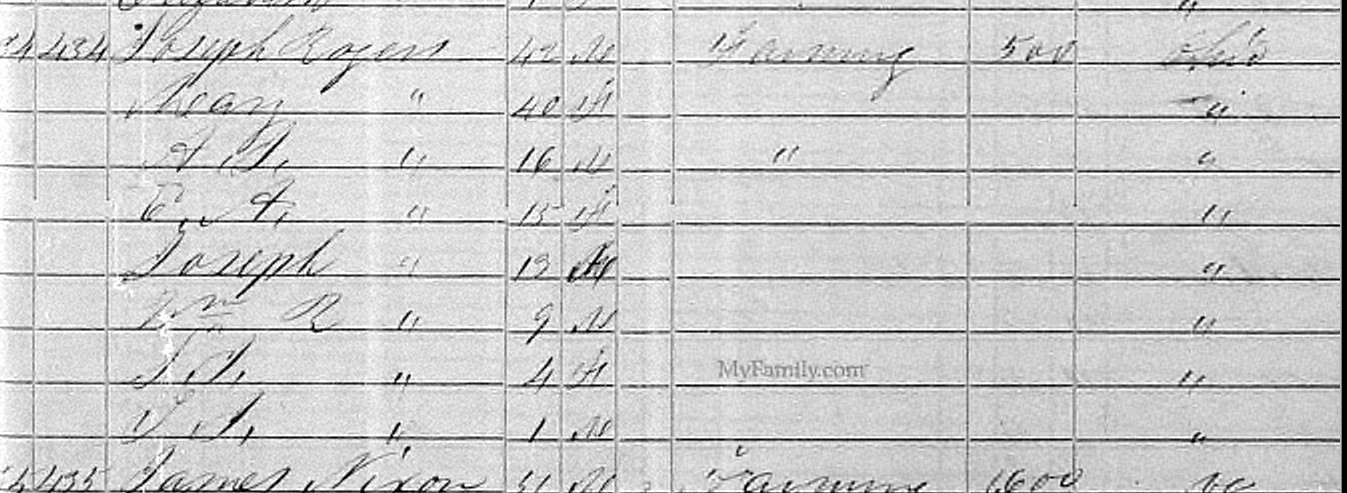 434 Joseph Rogers 42 M Farming 500 Ohio
Mary " 40 F "
" 16 M " "
E. A. " 15 F "
Joseph " 13 M "
Wm R " 9 M "
" 4 F "
" 1 M "
MyFamily.com
435 James Nixon 51 M Farming 1600